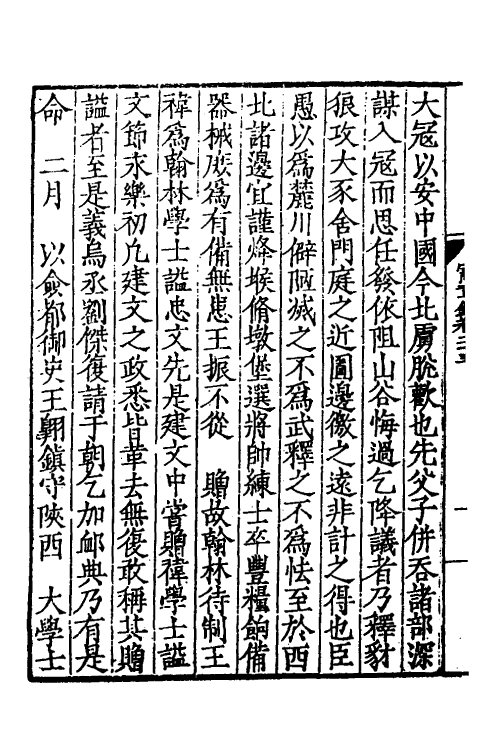 大冦以安中國今北虜脫歡也先父子併吞諸部深
謀入冦而思任發依阻山谷悔過乞降議者乃釋豺
狼攻大豕舍門庭之近圖邊徼之遠非計之得也臣
愚以爲麓川僻陋滅之不爲武釋之不爲怯至於西
北諸邊宜謹烽堠脩墩堡選將帥練士卒豐糧餉備
器械庶爲有備無患王振不從　贈故翰林待制王
禕爲翰林學士謚忠文先是建文中嘗贈禕學士謚
文節永樂初凡建文之政悉皆革去無復敢稱其贈
謚者至是義烏丞劉傑復請于朝乞加䘏典乃有是
命　二月　以僉都御史王翺鎮守陝西　大學士